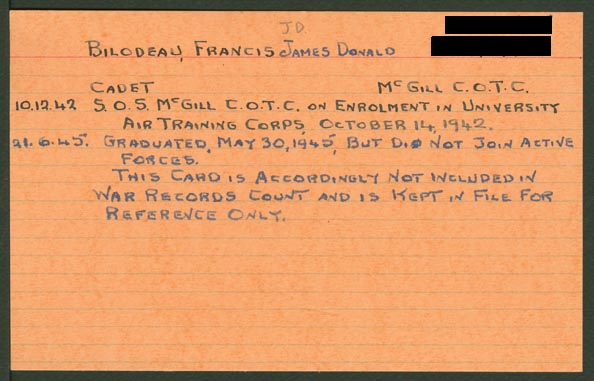 J.D.
BILODEAU, FRANCIS JAMES DONALD
CADET McGILL C.O.T.C.
10.12.42 S.O.S. McGILL C.O.T.C. ON ENROLMENT IN UNIVERSITY
AIR TRAINING CORPS, OCTOBER 14, 1942.
21.6.45. GRADUATED, MAY 30, 1945, BUT DID NOT JOIN ACTIVE
FORCES.
THIS CARD IS ACCORDINGLY NOT INCLUDED IN
WAR RECORDS COUNT AND IS KEPT IN FILE FOR
REFERENCE ONLY.